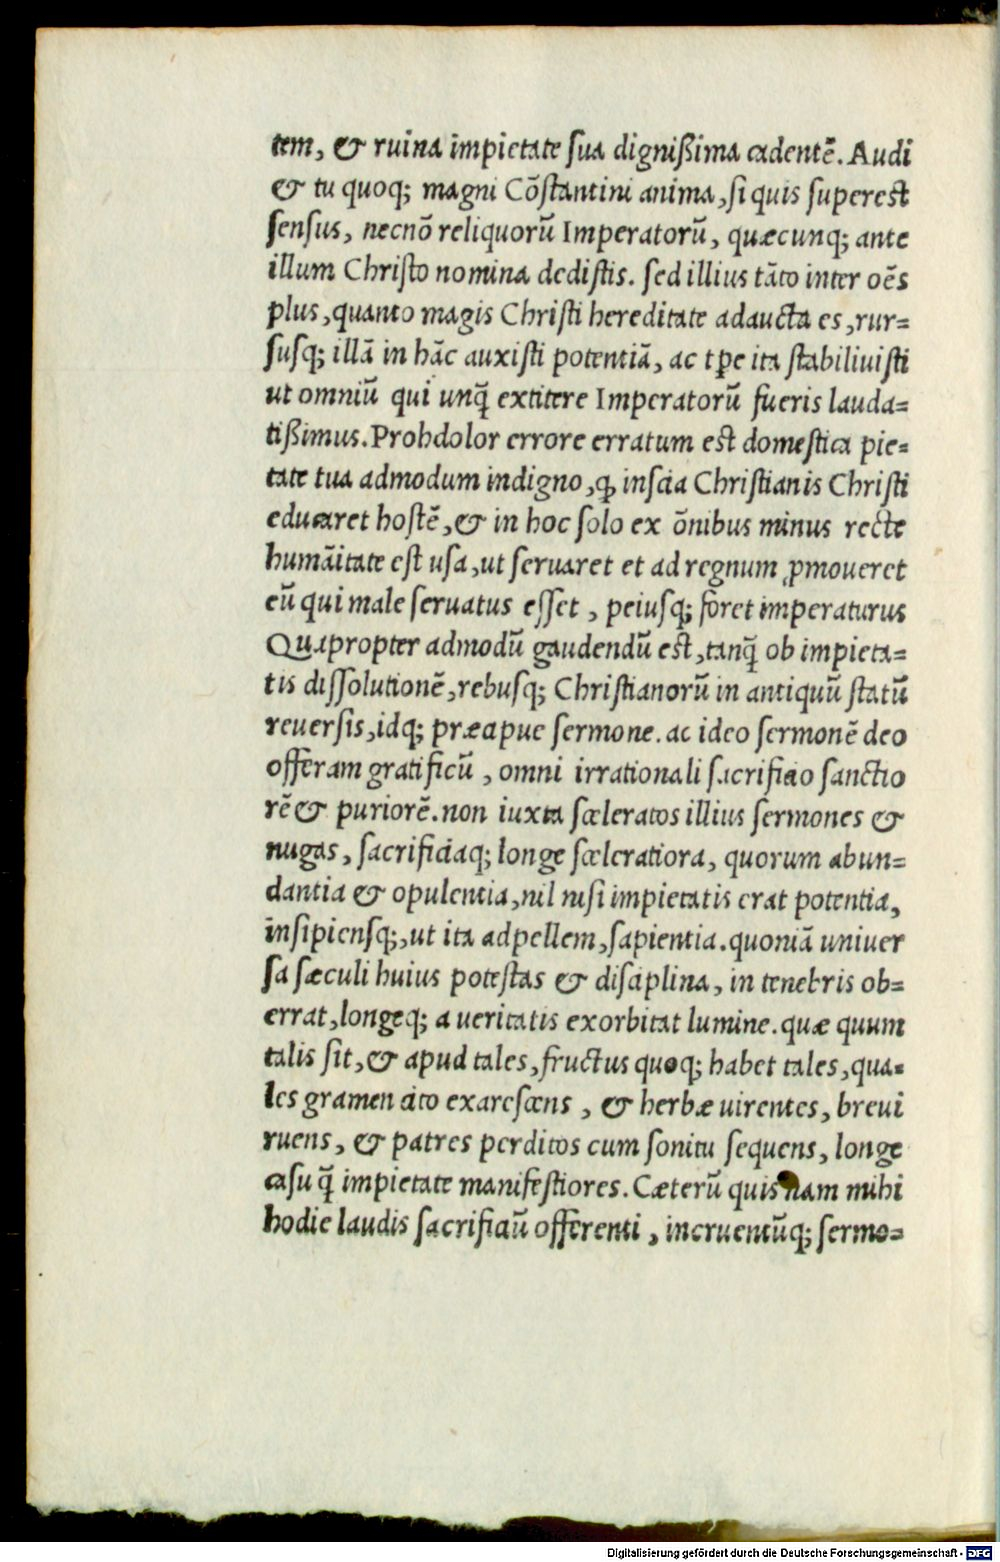 tem, & ruina impietate ſua digniſſima cadentē. Audi
& tu quoq; magni Cōſtantini anima, ſi quis ſupereſt
ſenſus, necnō reliquorū Imperatorū, quæcunq; ante
illum Chriſto nomina dediſtis. ſed illius tāto inter oēs
plus, quanto magis Chriſti hereditate adaucta es, rur=
ſusq; illā in hāc auxiſti potentiā, ac tꝑe ita ſtabiliuiſti
ut omniū qui unq̄ extitere Imperatorū fueris lauda=
tiſſimus. Prohdolor errore erratum eſt domeſtica pie=
tate tua admodum indigno, ꝙ inſcia Chriſtianis Chriſti
educaret hoſtē, & in hoc ſolo ex ōnibus minus recte
humāitate eſt uſa, ut ſeruaret et ad regnum ꝓmoueret
eū qui male ſeruatus eſſet, peiusq; foret imperaturus
Quapropter admodū gaudendū eſt, tanq̄ ob impieta=
tis diſſolutionē, rebuſq; Chriſtianorū in antiquū ſtatū
reuerſis, idq; præcipue ſermone. ac ideo ſermonē deo
offeram gratificū, omni irrationali ſacrificio ſanctio
rē & puriorē. non iuxta ſceleratos illius ſermones &
nugas, ſacrificiaq; longe ſceleratiora, quorum abun=
dantia & opulentia, nil niſi impietatis erat potentia,
inſipienſq;, ut ita adpellem, ſapientia. quoniā uniuer
ſa ſæculi huius poteſtas & diſciplina, in tenebris ob=
errat, longeq; a ueritatis exorbitat lumine. quæ quum
talis ſit, & apud tales, fructus quoq; habet tales, qua=
les gramen cito exareſcens, & herbæ uirentes, breui
ruens, & patres perditos cum ſonitu ſequens, longe
caſu q̄ impietate manifeſtiores. Cæterū quis nam mihi
hodie laudis ſacrificiū offerenti, incruentūq; ſermo=
Digitalisierung gefördert durch die Deutsche Forschungsgemeinschaft - DFG